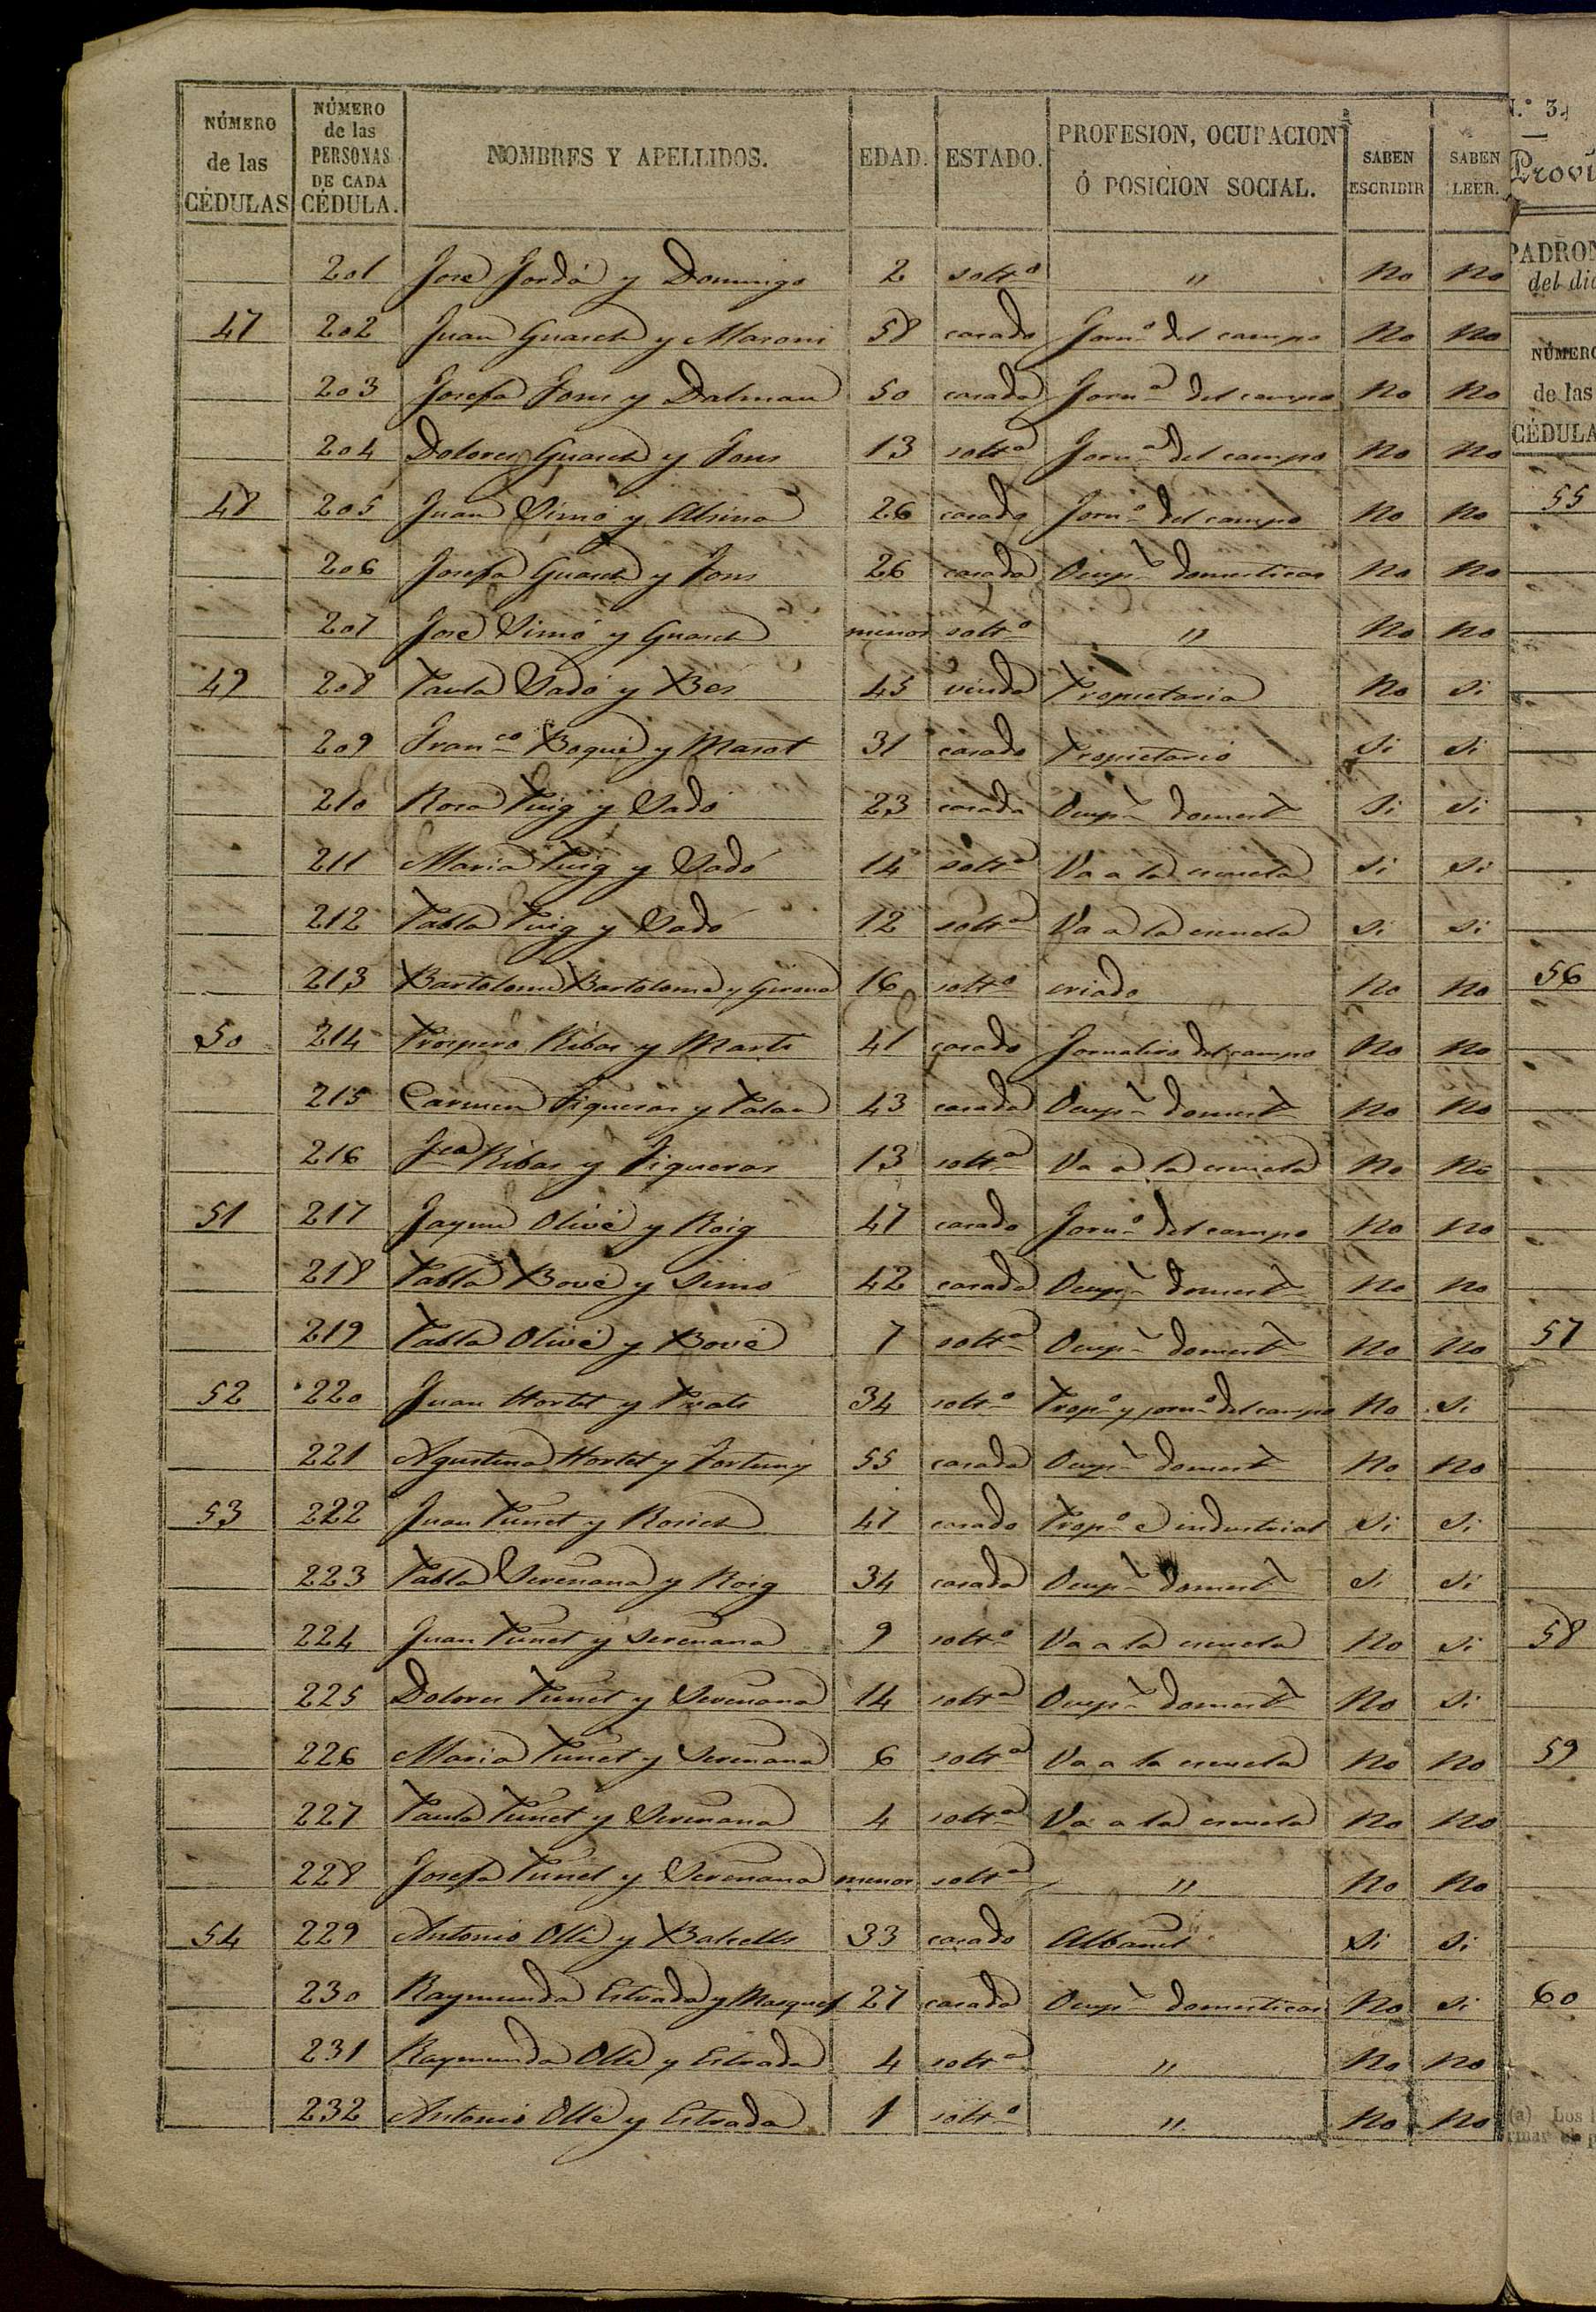 NÚMERO de las CÉDULAS NÚMERO de las PERSONAS DE CADA CÉDULA. NOMBRES Y APELLIDOS. EDAD. ESTADO. PROFESION, OCUPACION Ó POSICION SOCIAL. SABEN ESCRIBIR SABEN LEER.
201 José Jordá y Domingo 2 solt.o " No No
47 202 Juan Guasch y Masoni 58 casado Jorn.o del campo No No
203 Josefa Fons y Dalmau 50 casada Jorn.a del campo No No
204 Dolores Guasch y Fons 13 solt.a Jorn.a del campo No No
48 205 Juan Simó y Alsina 26 casado Jorn.o del campo No No
206 Josefa Guasch y Fons 26 casada Ocup.s domesticas No No
207 José Simó y Guasch menor solt.o " No No
49 208 Paula Sadó y Bes 45 viuda Propietaria No Si
209 Fran.co Boqué y Masot 31 casado Propietario Si Si
210 Rosa Puig y Sadó 23 casada Ocup.s domest.s Si Si
211 Maria Puig y Sadó 14 solt.a Va a la escuela Si Si
212 Pabla Puig y Sadó 12 solt.a Va a la escuela Si Si
213 Bartolomé Bartolomé y Girona 16 solt.o criado No No
50 214 Prospero Ribas y Marti 41 casado Jornalero del campo No No
215 Carmen Figueras y Palau 43 casada Ocup.s domest.s No No
216 Fca Ribas y Figueras 13 solt.a Va a la escuela No No
51 217 Jayme Olivé y Roig 47 casado Jorn.o del campo No No
218 Pabla Bové y Simó 42 casada Ocup.s domest.s No No
219 Pabla Olivé y Bové 7 solt.a Ocup.s domest.s No No
52 220 Juan Hortet y Prats 34 solt.o Prop.o y jorn.o del campo No Si
221 Agustina Hortet y Fortuny 55 casada Ocup.s domest.s No No
53 222 Juan Punet y Rosich 47 casado Prop.o e industrial Si Si
223 Pabla Seremana y Roig 34 casada Ocup.s domest.s Si Si
224 Juan Punet y Seremana 9 solt.o Va a la escuela No Si
225 Dolores Punet y Seremana 14 solt.a Ocup.s domest.s No Si
226 Maria Punet y Seremana 6 solt.a Va a la escuela No No
227 Paula Punet y Seremana 4 solt.a Va a la escuela No No
228 Josefa Punet y Seremana menor solt.a " No No
54 229 Antonio Ollé y Balcells 33 casado Albañil Si Si
230 Raymunda Estrada y Masquef 27 casada Ocup.s domesticas No Si
231 Raymunda Ollé y Estrada 4 solt.a " No No
232 Antonio Ollé y Estrada 1 solt.o " No No
N.º 3.
Provi
PADRON
del dia
NÚMERO
de las
CÉDULA
55
56
57
58
59
60
(a) Los